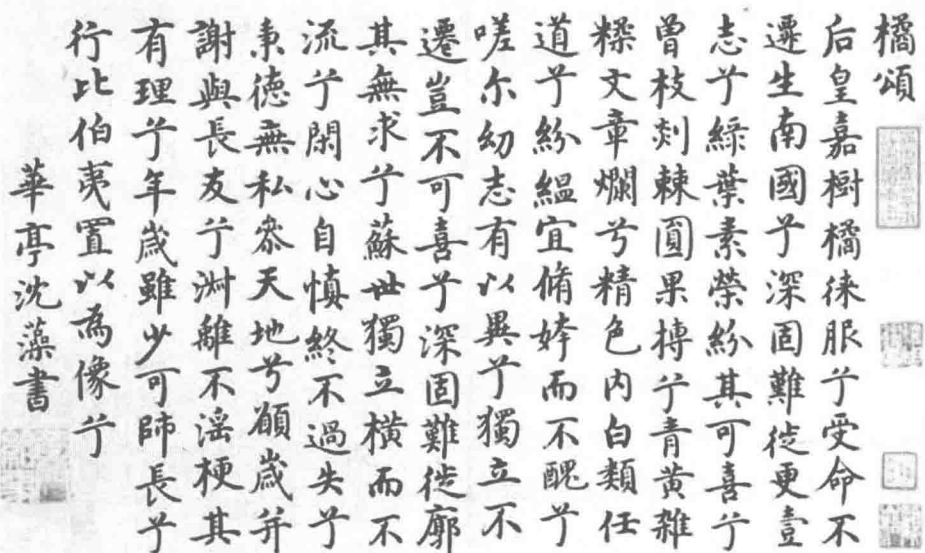 橘頌
后皇嘉樹橘徠服兮受命不
遷生南國兮深固難徙更壹
志兮綠葉素榮紛其可喜兮
曾枝剡棘圓果摶兮青黃雜
糅文章爛兮精色內白類任
道兮紛緼宜脩姱而不醜兮
嗟尓幼志有以異兮獨立不
遷豈不可喜兮深固難徙廓
其無求兮蘇世獨立橫而不
流兮閉心自慎終不過失兮
秉德無私叅天地兮願歲并
謝與長友兮淑離不滛梗其
有理兮年歲雖少可師長兮
行比伯夷置以為像兮
華亭沈藻書